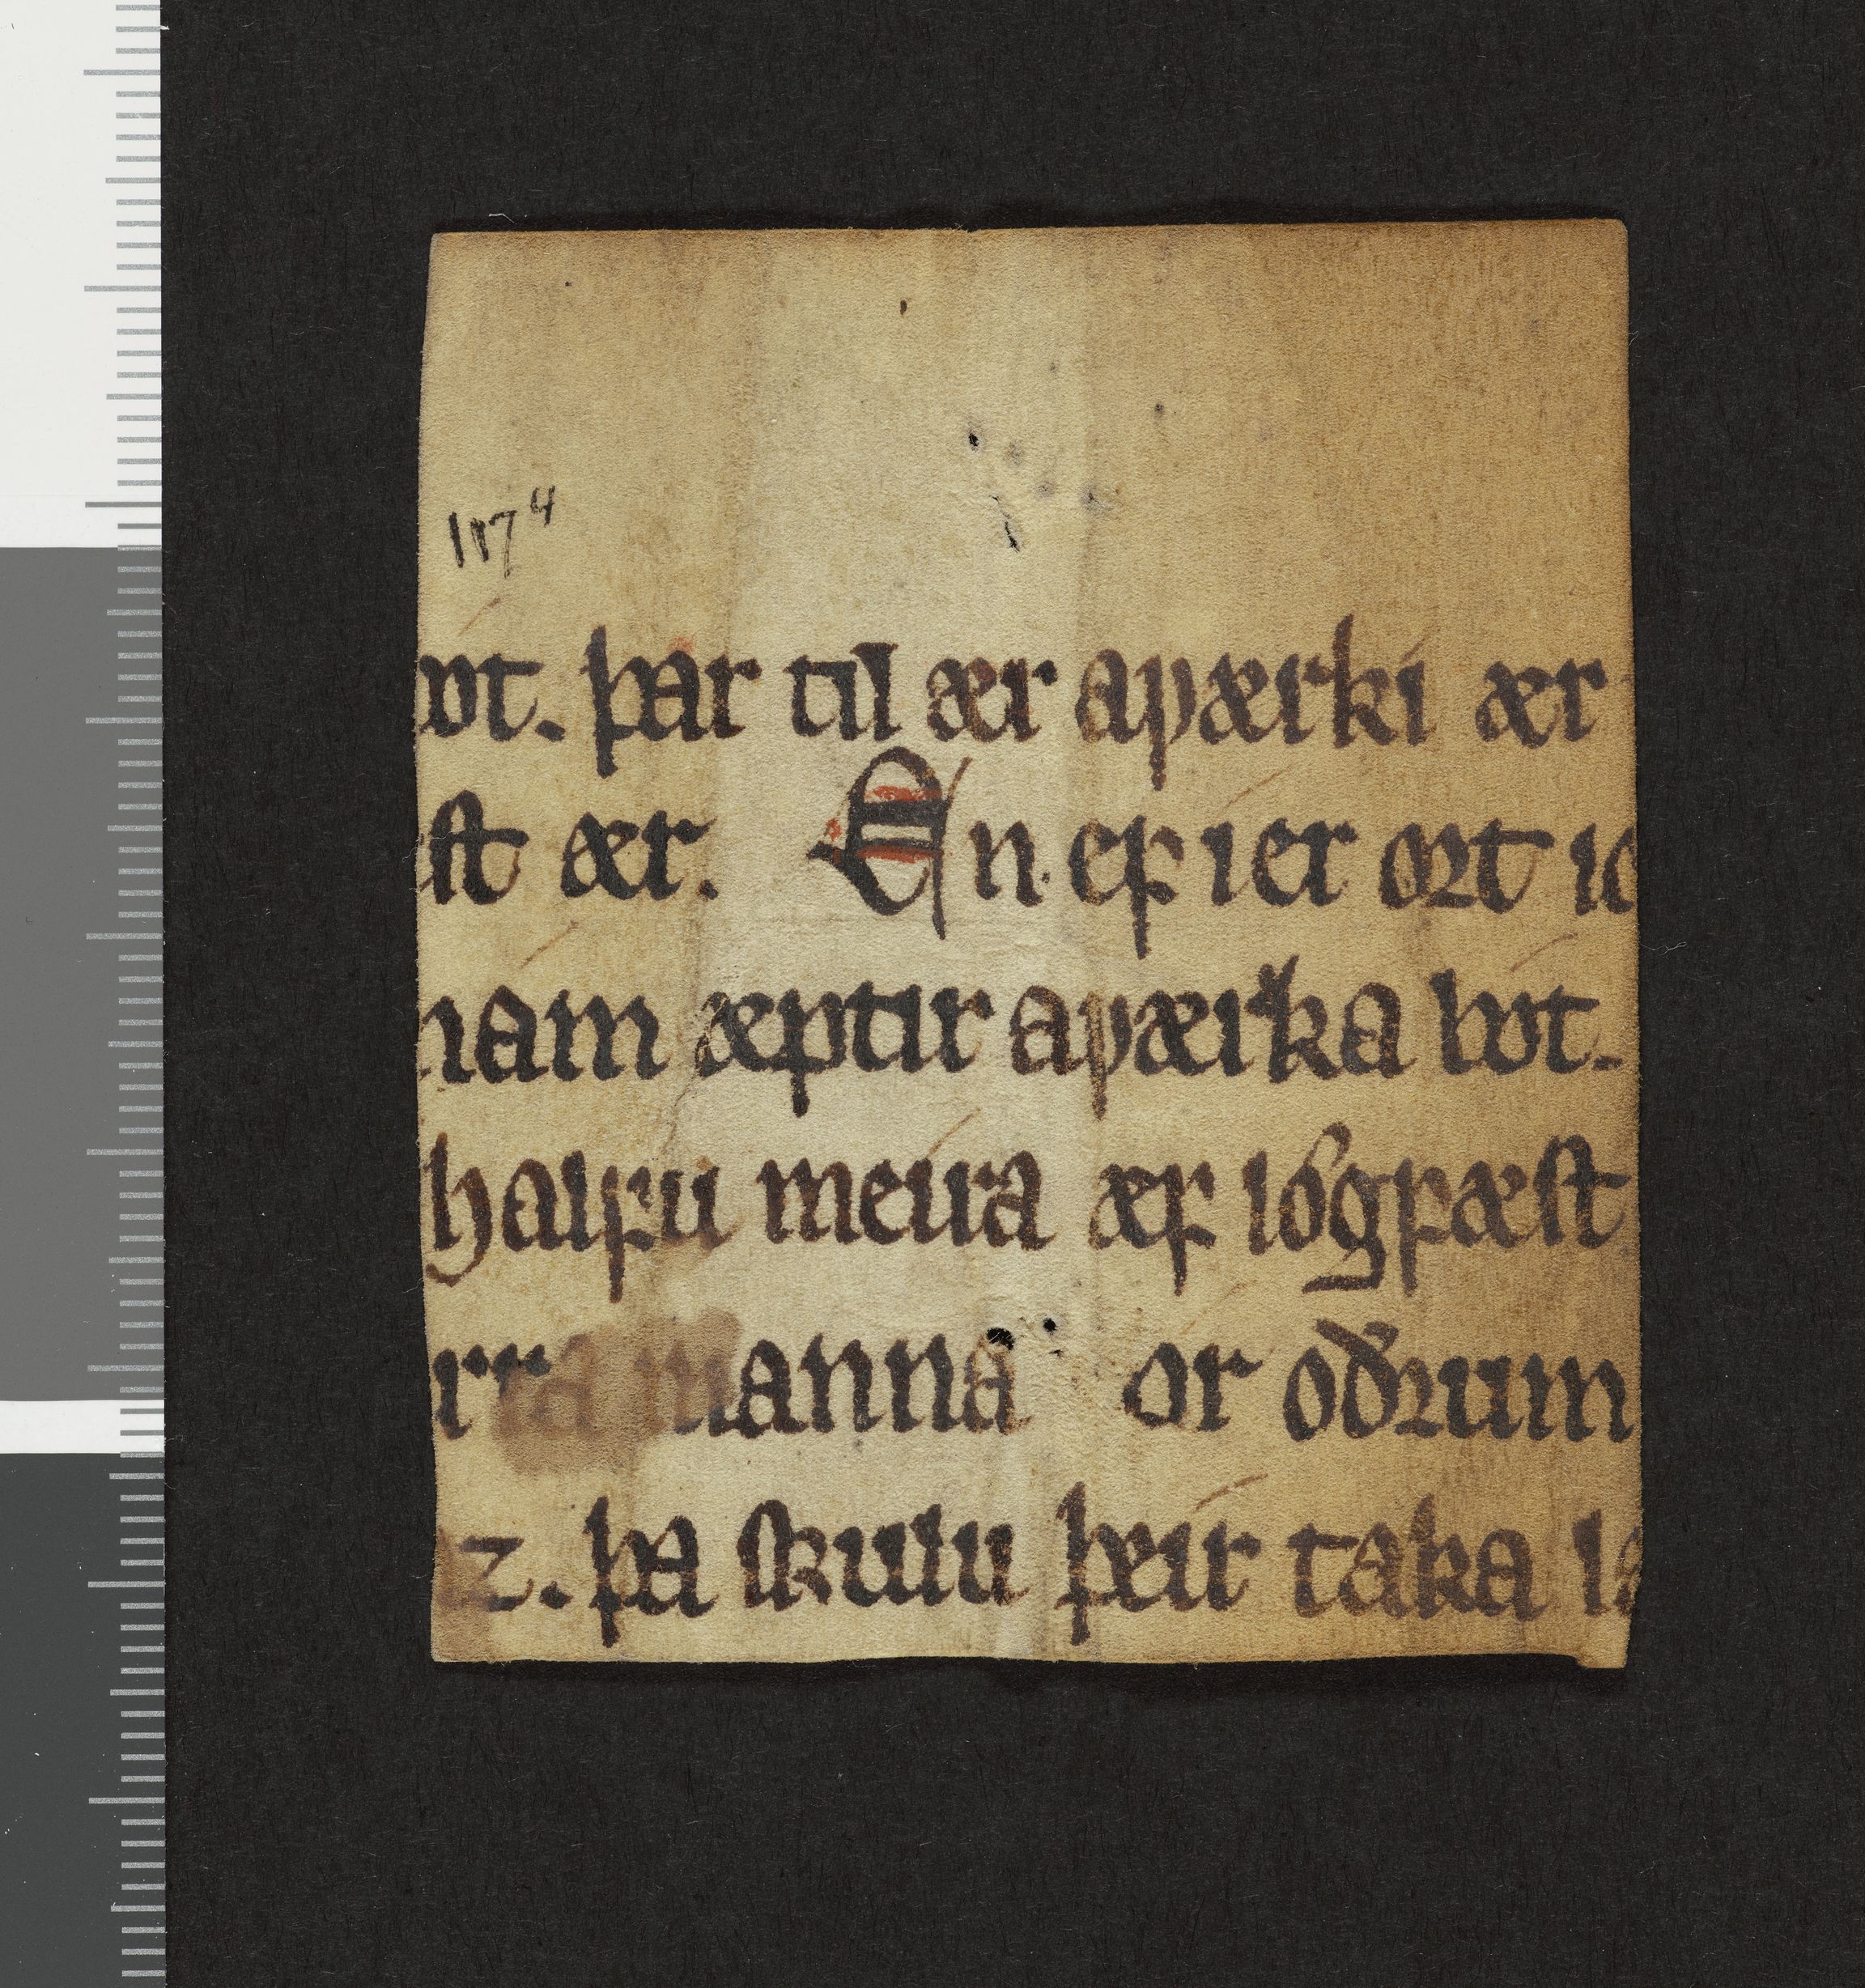 117⁴
bøt. þar til ær aværki ær
ſt ær. En ef ier ort io
nam æptir aværka bøt.
halfu meira æf lỏgfæſt
rra manna or oðꝛum
z. þa ſkulu þæir taka la